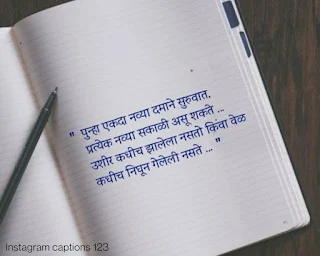 " पुन्हा एकदा नव्या दमाने सुरुवात,
प्रत्येक नव्या सकाळी असू शकते ...
उशीर कधीच झालेला नसतो किंवा वेळ
कधीच निघून गेलेली नसते ... "
Instagram captions 123